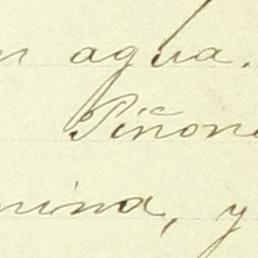 n agua.
Piñone
nina, y